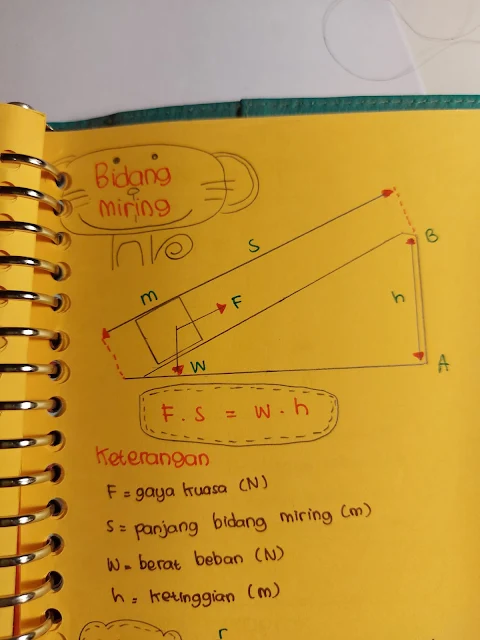 Bidang
miring
S
B
m
F
h
W
A
F . S = W . h
Keterangan
F = gaya kuasa (N)
S = panjang bidang miring (m)
W = berat beban (N)
h = ketinggian (m)
r